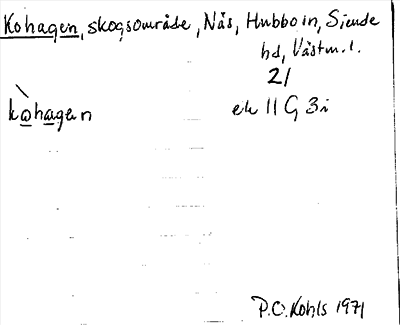 Kohagen, skogsområde, Nås, Hubbo sn, Siende
hd, Västm.l.
21
kòhagen
ek 11 G 3i
P.O. Kohls 1971